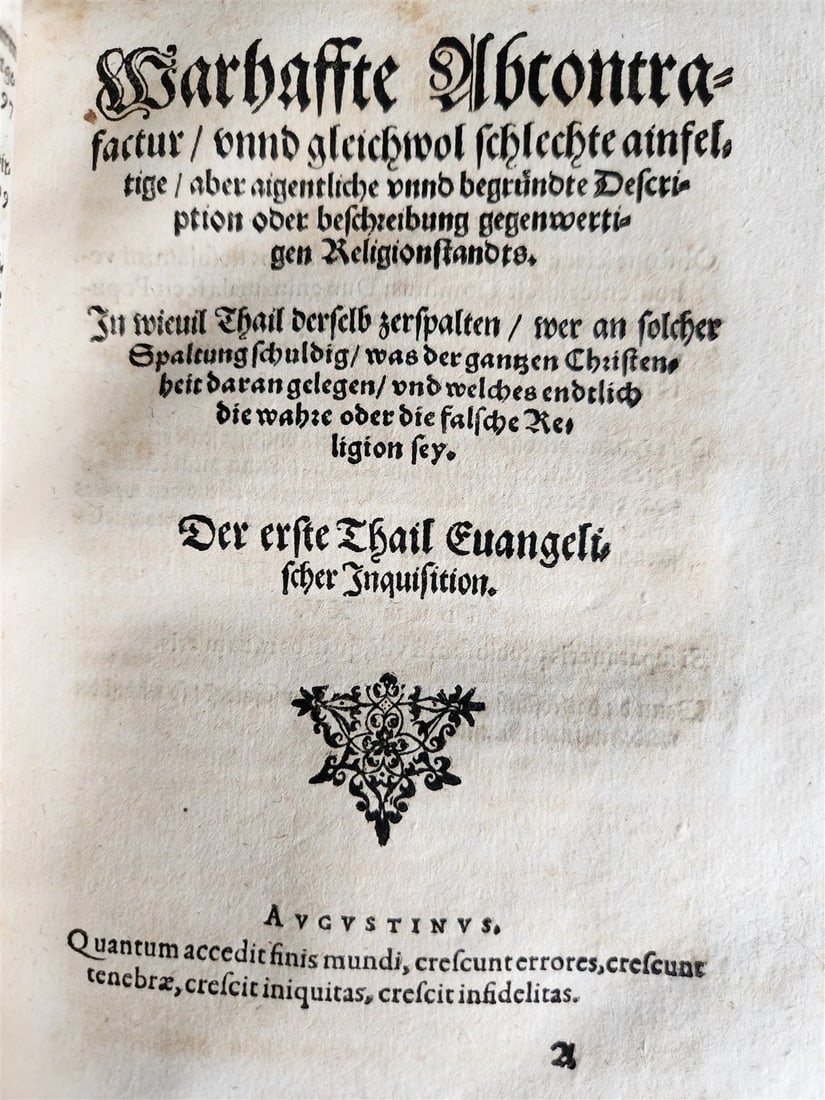 Warhaffte Abcontra-
factur / vnnd gleichwol schlechte ainfel-
tige / aber aigentliche vnnd begründte Descri-
ption oder beschreibung gegenwerti-
gen Religionstandts.
In wieuil Thail derselb zerspalten / wer an solcher
Spaltung schuldig / was der gantzen Christen-
heit daran gelegen / vnd welches endtlich
die wahre oder die falsche Re-
ligion sey.
Der erste Thail Euangeli-
scher Inquisition.
AVGVSTINVS.
Quantum accedit finis mundi, crescunt errores, crescunt
tenebræ, crescit iniquitas, crescit infidelitas.
A